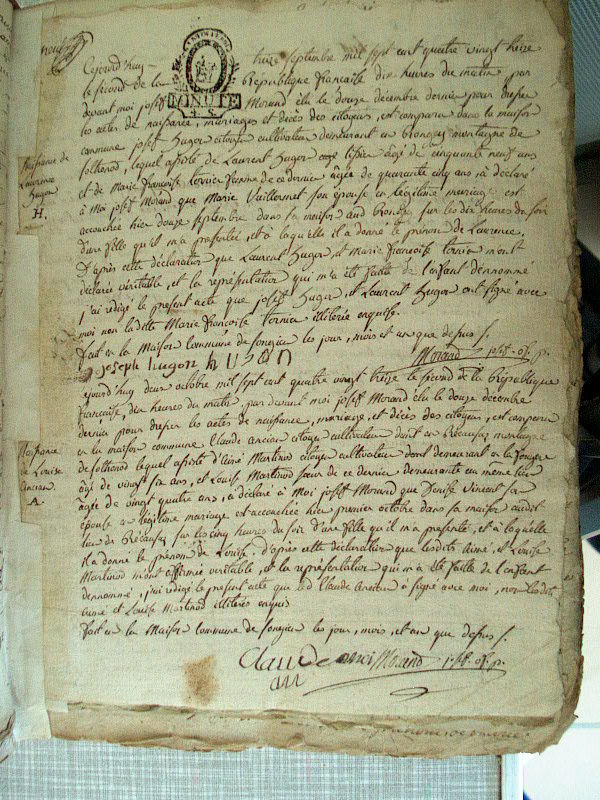 neuf
Cejourd'huy treize septembre mil sept cent quatre vingt treize
le second de la République francaise dix heures du matin par
devant moi joseph Morand élu le douze décembre dernier pour dresser
les actes de naissance, mariages et décès des citoyens, est comparu dans la maison
commune joseph hugon citoyen cultivateur demeurant en montagne de
folhenod, lequel assisté de Laurent hugon agé de cinquante neuf ans
et de Marie francoise tornier femme de ce dernier agée de quarante cinq ans a déclaré
à Moi joseph Morand que Marie Vuillermet son épouse en légitime mariage est
accouchée hier douze septembre dans sa maison sur les dix heures du soir
d'une fille qu'il m'a présentée, et à laquelle il a donné le prénom de Laurence,
D'après cette déclaration que Laurent hugon, et Marie francoise tornier m'ont
déclarée véritable, et la représentation qui m'a été faite de l'enfant dénommé
j'ai rédigé le présent acte que joseph hugon, et Laurent hugon ont signé avec
moi non laditte Marie francoise tornier illiterée enquise.
fait en la Maison commune de songieu les jour, mois et an que dessus
joseph hugon hugon Morand
Cejourd'huy deux octobre mil sept cent quatre vingt treize le second de la République
francaise, dix heures du matin, par devant moi joseph Morand élu le douze décembre
dernier pour dresser les actes de naissance, mariage, et décès des citoyens, est comparu
en la maison commune Claude ancian citoyen cultivateur montagne
de folhenod lequel assisté d'aimé Martinod citoyen cultivateur demeurant en
agé de vingt six ans, et Louise Martinod sœur de ce dernier demeurante en même lieu
agée de vingt quatre ans, a déclaré à Moi joseph Morand que Denise vincent son
épouse en légitime mariage est accouchée hier premier octobre dans sa maison audit
lieu de sur les cinq heures du soir d'une fille qu'il m'a présenté, et à laquelle
Il a donné le prénom de Louise, d'après cette déclaration que lesdits aimé, et Louise
Martinod m'ont affirmée véritable, et la représentation qui m'a été faite de l'enfant
dénommé, j'ai rédigé le présent acte que led Claude ancian à signé avec moi, non lesdits
aimé et Louise Martinod illiterés enquis
fait en la Maison commune de songieu les jour, mois, et an que dessus
Claude anci Morand
an
Naissance de
Laurence
hugon
H.
Naissance
de Louise
ancian.
A.
MINUTE